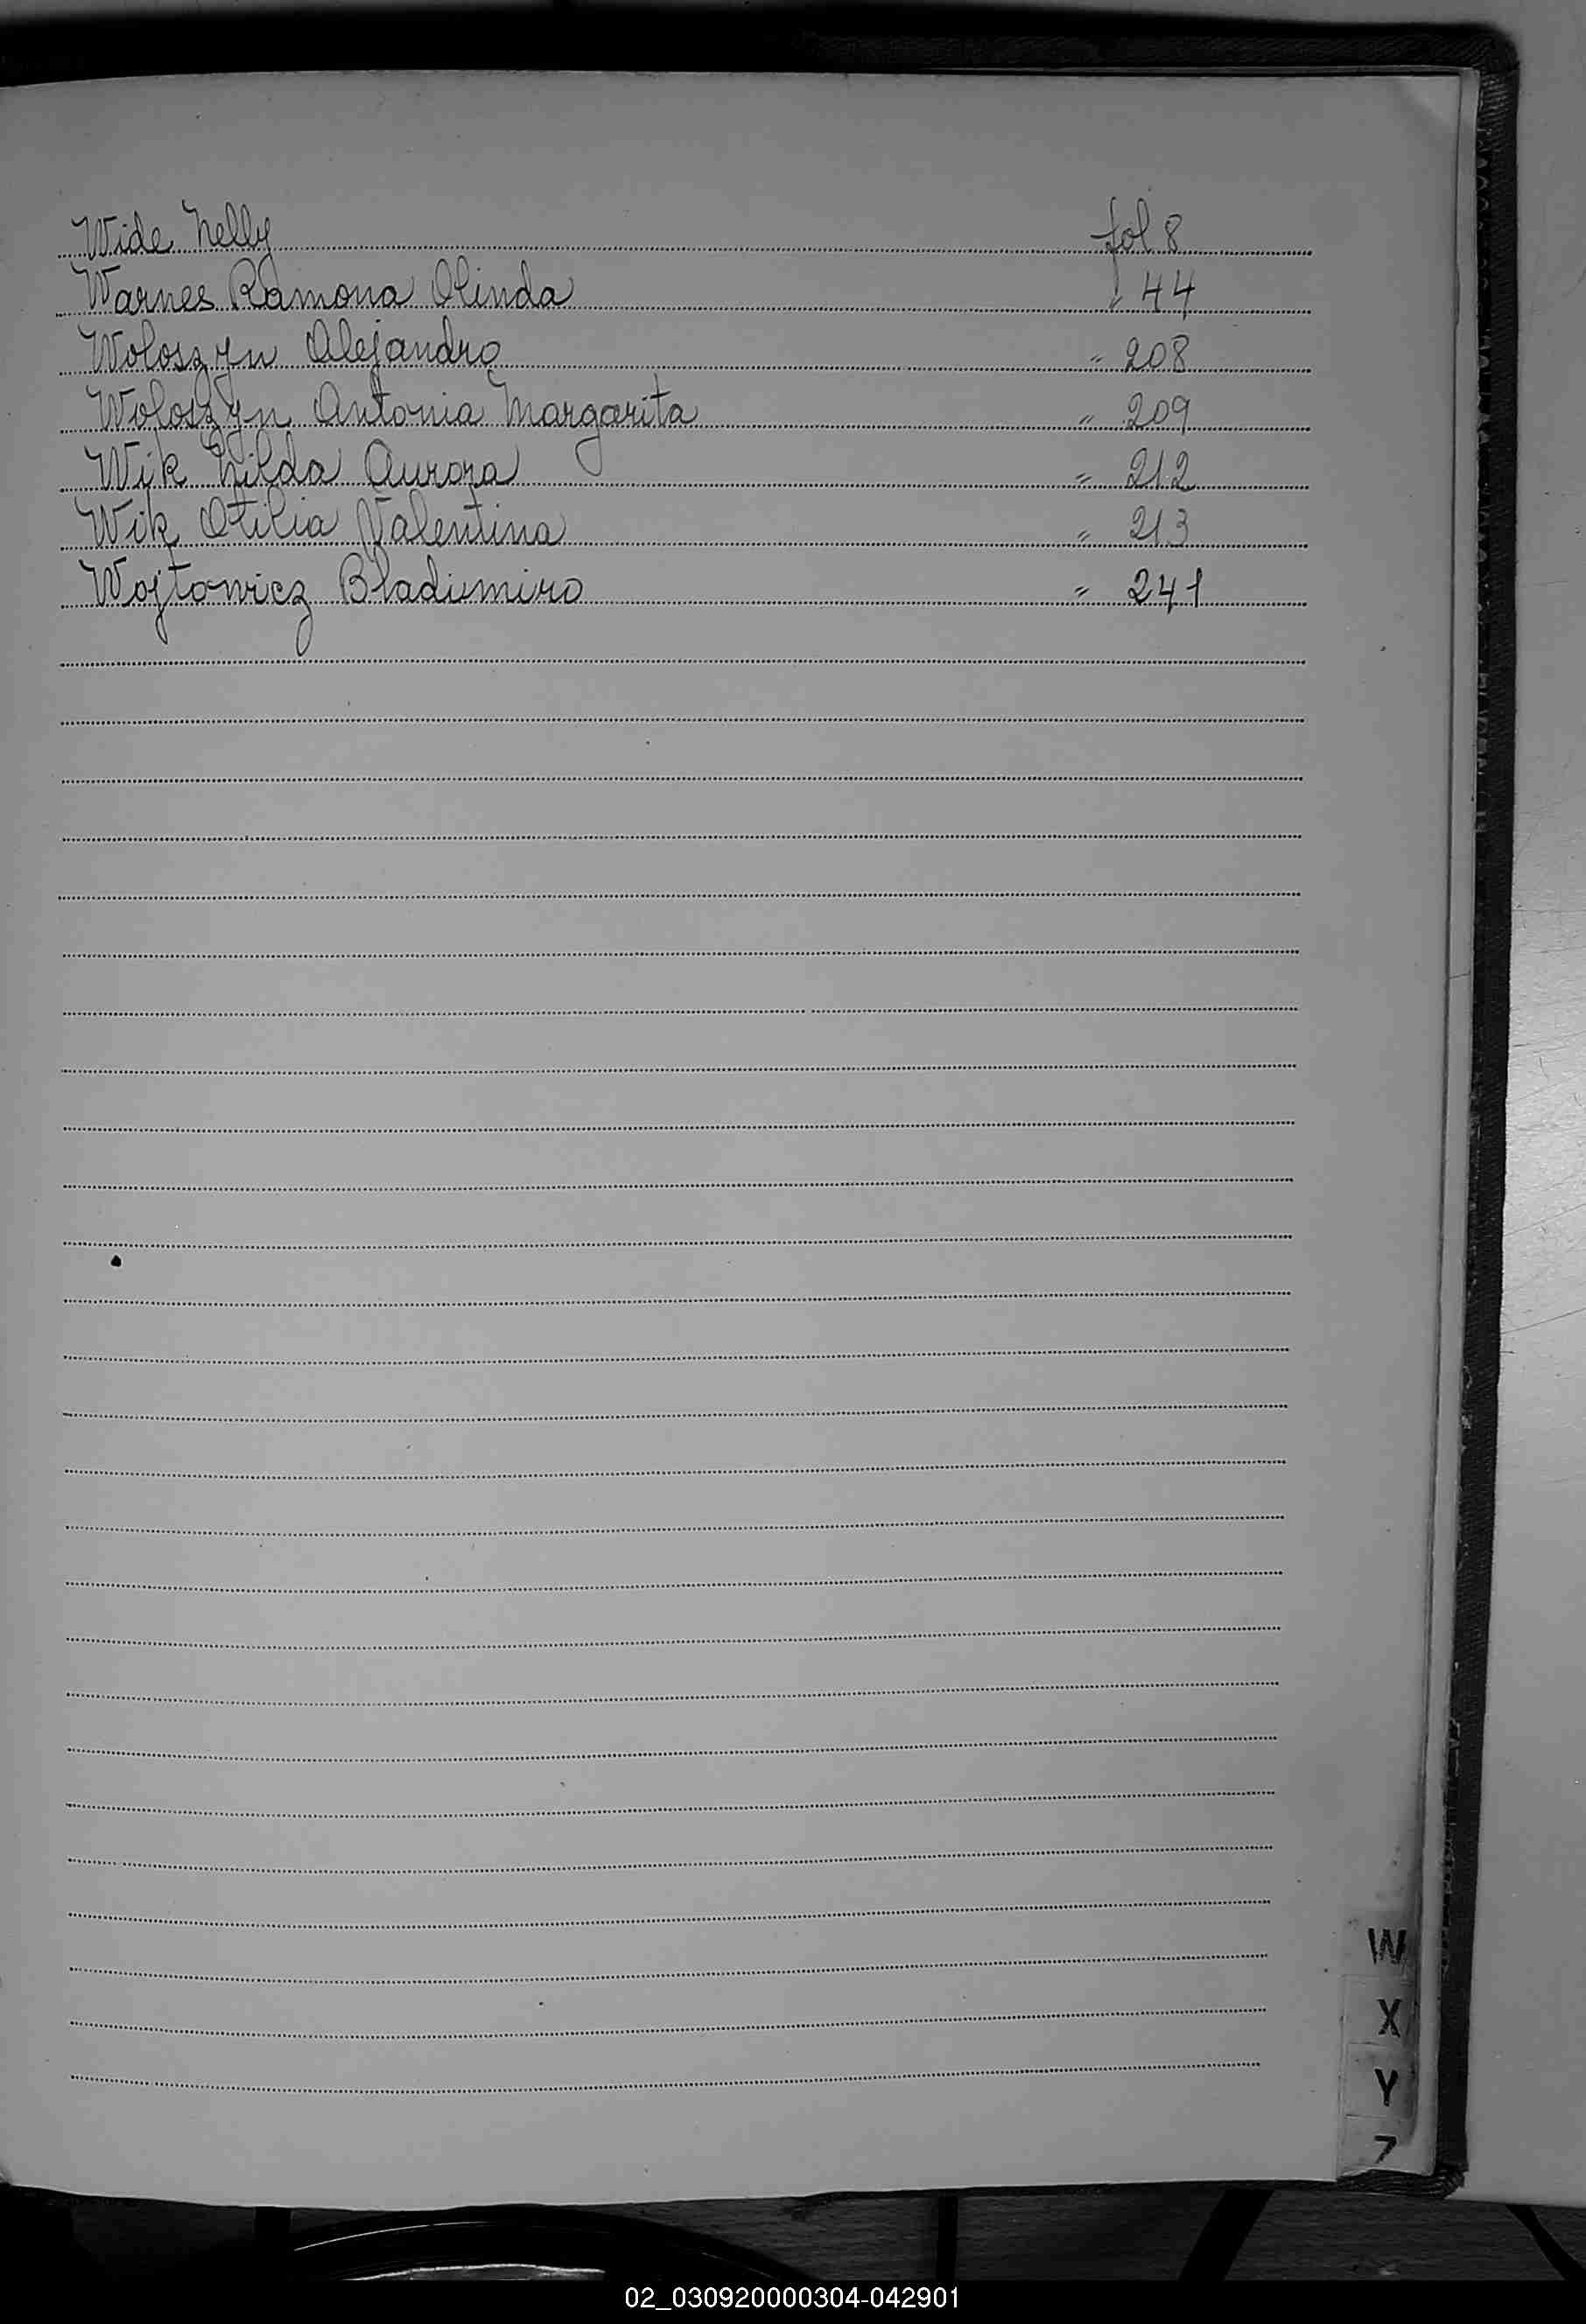 Wide Nelly fol 8
Warnes Ramona Olinda " 44
Woloszyn Alejandro " 208
Woloszyn Antonia Margarita " 209
Wik Hilda Aurora " 212
Wik Otilia Valentina " 213
Wojtowicz Bladimiro " 241
W
X
Y
Z
02_030920000304-042901